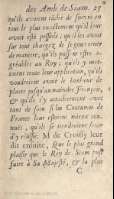 des Amb. de Siam. 27
qu'ils avoient tâché de suivre en
tout le plus excellemment qu'il leur
avoit esté possible; qu'ils les avoit
sur tout chargez de se gouverner
de maniere, qu'ils pussent estre a-
gréables au Roy; qu'ils y met-
toient toute leur application, qu'ils
voudroient avoir le bonheur de
plaire jusqu'au moindre François,
& qu'ils s'y attacheroient avec
tant de soin, si les Coutumes de
France leur estoient mieux con-
nuës, qu'ils se tiendroient seurs
d'y réüssir. M. de Croissy leur
dit ensuite, que le plus grand
plaisir que le Roy de Siam pust
faire à Sa Majesté, & la plus
C